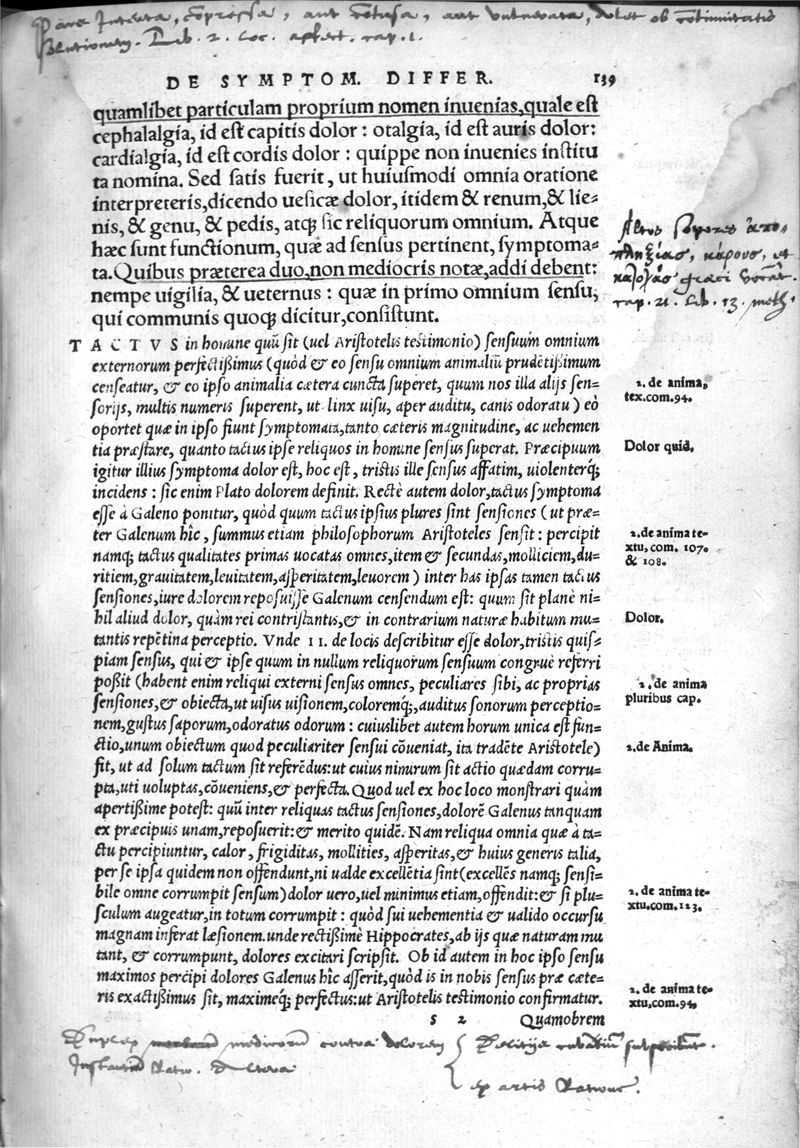 Pars Intenta, compressa, aut contusa, aut vulnerata, dolet ob continuitatis
solutionem. Lib. 2. loc. affect. cap. 1.
DE SYMPTOM. DIFFER. 139
quamlibet particulam proprium nomen inuenias, quale est
cephalalgia, id est capitis dolor : otalgia, id est auris dolor:
cardialgia, id est cordis dolor : quippe non inuenies institu
ta nomina. Sed satis fuerit, ut huiusmodi omnia oratione
interpreteris, dicendo uesicæ dolor, itidem & renum, & lie-
nis, & genu, & pedis, atq; sic reliquorum omnium. Atque
hæc sunt functionum, quæ ad sensus pertinent, symptoma-
ta. Quibus præterea duo, non mediocris notæ, addi debent:
nempe uigilia, & ueternus : quæ in primo omnium sensu,
qui communis quoq; dicitur, consistunt.
cap. 21. Lib. 13. meth.
TACTVS in homine quũ sit (uel Aristotelis testimonio) sensuum omnium
externorum perfectißimus (quòd & eo sensu omnium animaliũ prudẽtißimum
censeatur, & eo ipso animalia cætera cuncta superet, quum nos illa alijs sen-
sorijs, multis numeris superent, ut linx uisu, aper auditu, canis odoratu) eò
oportet quæ in ipso fiunt symptomata, tanto cæteris magnitudine, ac uehemen
tia præstare, quanto tactus ipse reliquos in homine sensus superat. Præcipuum
igitur illius symptoma dolor est, hoc est, tristis ille sensus affatim, uiolenterq;
incidens : sic enim Plato dolorem definit. Rectè autem dolor, tactus symptoma
esse à Galeno ponitur, quòd quum tactus ipsius plures sint sensiones (ut præ-
ter Galenum hîc, summus etiam philosophorum Aristoteles sensit : percipit
namq; tactus qualitates primas uocatas omnes, item & secundas, molliciem, du-
ritiem, grauitatem, leuitatem, asperitatem, leuorem) inter has ipsas tamen tactus
sensiones, iure dolorem reposuisse Galenum censendum est: quum sit planè ni-
hil aliud dolor, quàm rei contristantis, & in contrarium naturæ habitum mu-
tantis repẽtina perceptio. Vnde 11. de locis describitur esse dolor, tristis quis-
piam sensus, qui & ipse quum in nullum reliquorum sensuum congruè referri
poßit (habent enim reliqui externi sensus omnes, peculiares sibi, ac proprias
sensiones, & obiecta, ut uisus uisionem, coloremq;, auditus sonorum perceptio-
nem, gustus saporum, odoratus odorum : cuiuslibet autem horum unica est fun-
ctio, unum obiectum quod peculiariter sensui cõueniat, ita tradẽte Aristotele)
fit, ut ad solum tactum sit referẽdus: ut cuius nimirum sit actio quædam corru-
pta, uti uoluptas, cõueniens, & perfecta. Quod uel ex hoc loco monstrari quàm
apertißime potest: quũ inter reliquas tactus sensiones, dolorẽ Galenus tanquam
ex præcipuis unam, reposuerit: & merito quidẽ. Nam reliqua omnia quæ à ta-
ctu percipiuntur, calor, frigiditas, mollities, asperitas, & huius generis talia,
per se ipsa quidem non offendunt, ni ualde excellẽtia sint (excellẽs namq; sensi-
bile omne corrumpit sensum) dolor uero, uel minimus etiam, offendit: & si plu-
sculum augeatur, in totum corrumpit : quòd sui uehementia & ualido occursu
magnam inferat læsionem. unde rectißimè Hippocrates, ab ijs quæ naturam mu
tant, & corrumpunt, dolores excitari scripsit. Ob id autem in hoc ipso sensu
maximos percipi dolores Galenus hîc asserit, quòd is in nobis sensus præ cæte-
ris exactißimus sit, maximeq; perfectus: ut Aristotelis testimonio confirmatur.
2. de anima,
tex. com. 94.
Dolor quid.
2. de anima te-
xtu, com. 107.
& 108.
Dolor.
2. de anima
pluribus cap.
2. de Anima.
2. de anima te-
xtu. com. 123.
2. de anima te-
xtu, com. 94.
s 2 Quamobrem
Duplex medicorum contra dolorem
ex artis Ratione.